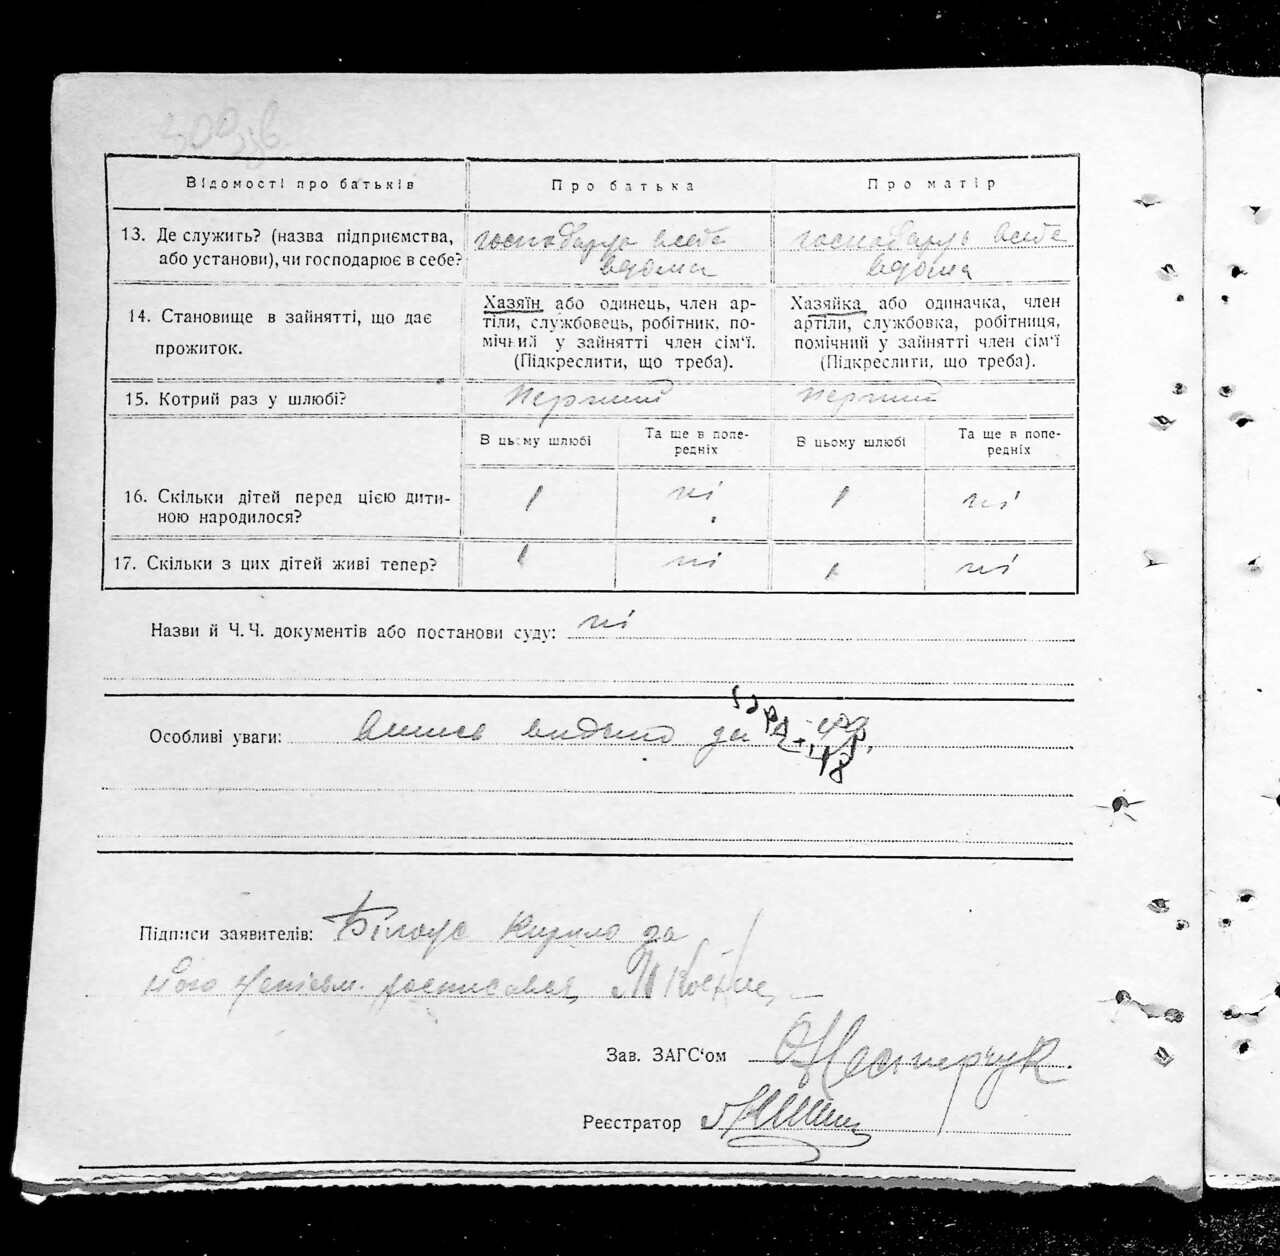 Відомості про батьків Про батька Про матір
13. Де служить? (назва підприємства, або установи), чи господарює в себе?
господарює в себе
вдома
господарює в себе
вдома
14. Становище в зайнятті, що дає прожиток.
Хазяїн або одинець, член ар-
тіли, службовець, робітник, по-
мічний у зайнятті член сім'ї.
(Підкреслити, що треба).
Хазяйка або одиначка, член
артіли, службовка, робітниця,
помічний у зайнятті член сім'ї
(Підкреслити, що треба).
15. Котрий раз у шлюбі? перший перший
В цьому шлюбі Та ще в попе-
редніх В цьому шлюбі Та ще в попе-
редніх
16. Скільки дітей перед цією дити-
ною народилося? 1 ні 1 ні
17. Скільки з цих дітей живі тепер? 1 ні 1 ні
Назви й Ч. Ч. документів або постанови суду: ні
Особливі уваги: видано за
Підписи заявителів: Білоус Кирило за
його росписався
Зав. ЗАГС'ом Нестерчук
Реєстратор